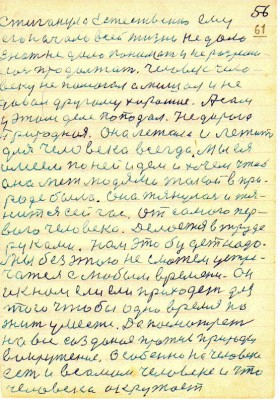 56
61
Стиганую Естественно ему
сначало всей жизни не дало
Знат не дало понимат и не
продолжит. Человек чело-
веку не помогал а мишал и не
давал другому хорошие. А сам
у этом деле попадал. Не дорога
природная. Она лежала и лежит
для человека всегда. Мы ея
имеем по ней идем и хочем чтоб
она меж людями такой в при-
роде была. Она тянулася и тя-
нится сейчас. От самого пер-
вого человека. Делается в труде
руками. Нам Это будет надо.
Мы без этого не сможем устре-
чатся с любым времени. Он
к нам если приходет для
того чтобы одно время по
жит умести. Да посмотрет
на все создания против природы
вооружение. Особенно на человеке
ест и в самом человеке и что
человека окружает